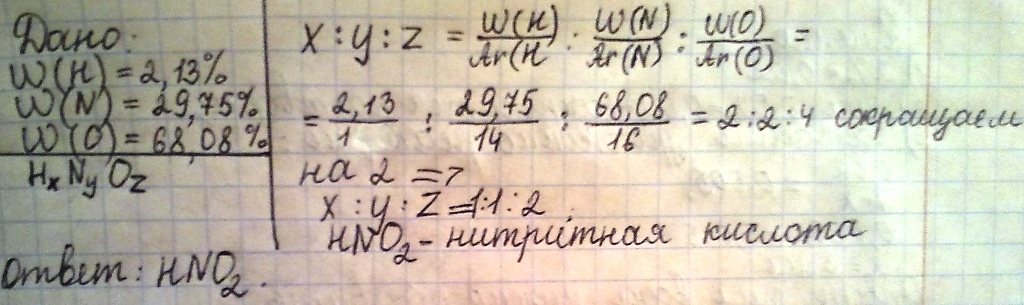 Дано:
W(H) = 2,13%
W(N) = 29,75%
W(O) = 68,08%
HxNyOz
X : y : Z = W(H)/Ar(H : W(N)/Ar(N) : W(O)/Ar(O) =
= 2,13/1 : 29,75/14 : 68,08/16 = 2:2:4 сокращаем
на 2 =>
X : y : Z = 1:1:2.
HNO₂ - нитритная кислота
Ответ: HNO₂.